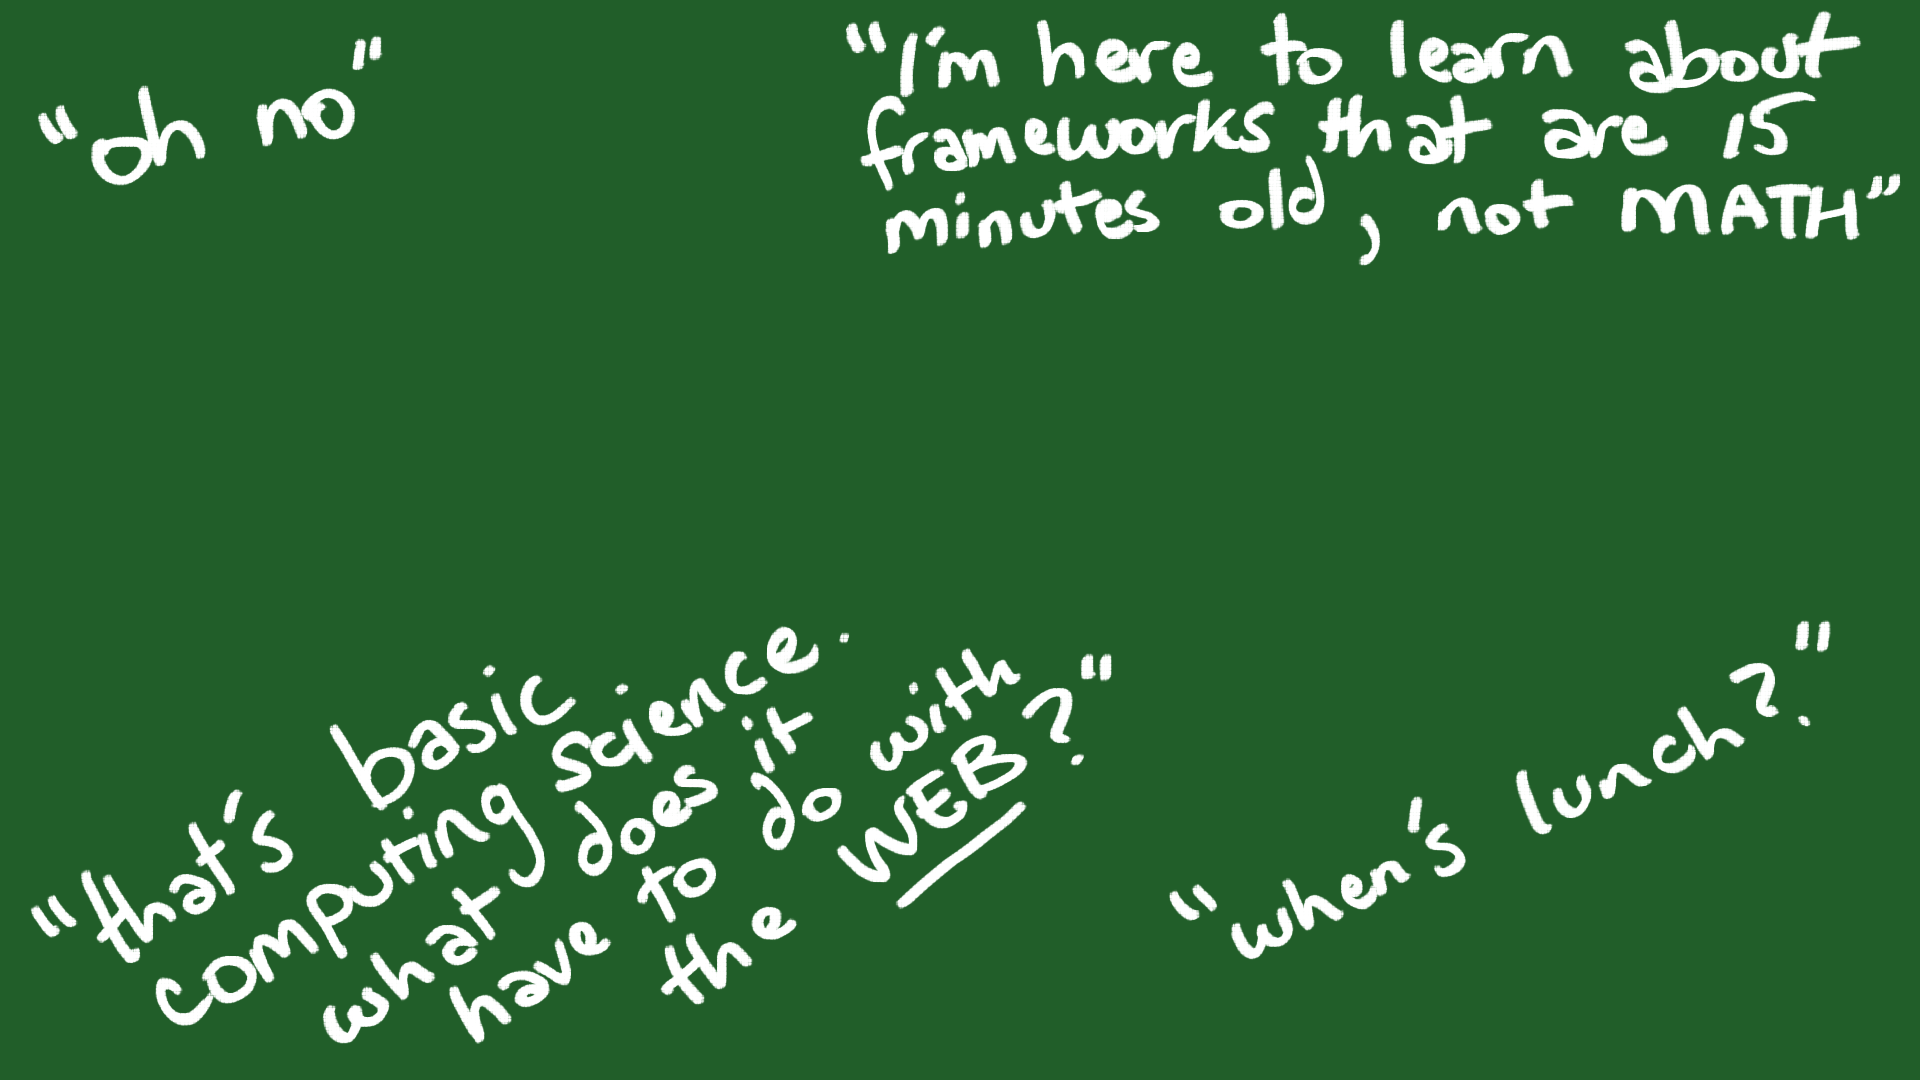 "oh no"
"I'm here to learn about
frameworks that are 15
minutes old, not MATH"
"that's basic
computing science.
what does it
have to do with
the WEB?"
"when's lunch?"